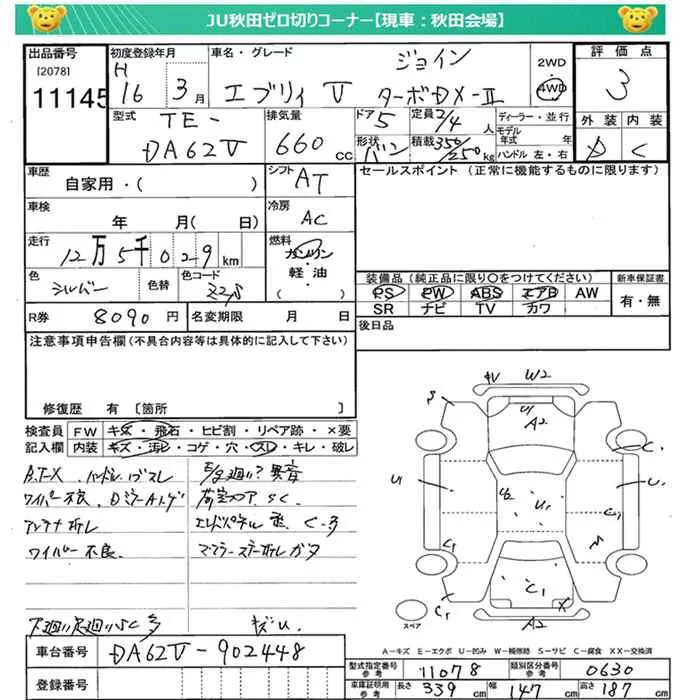 JU秋田ゼロ切りコーナー【現車：秋田会場】
出品番号
[2078]
11145
初度登録年月
H
16 3月
車名・グレード
ジョイン
エブリィ V ターボDX-II
2WD
4WD
評価点
3
外装 内装
C
型式
TE-
DA62V
排気量
660 cc
ドア
5
形状
バン
定員 2/4 人
積載 350/250 kg
ディーラー・並行
モデル年式 年
ハンドル 左・右
車歴
自家用・( )
シフト
AT
車検
年 月( 日)
冷房
AC
走行
12万5千029km
燃料
ガソリン
軽油
( )
色
シルバー
色替
色コード
Z2S
R券 8090 円
名変期限 月 日
セールスポイント (正常に機能するものに限ります)
装備品 (純正品に限り○をつけてください)
PS PW ABS エアB AW
SR ナビ TV カワ
新車保証書
有・無
後日品
注意事項申告欄(不具合内容等は具体的に記入して下さい)
修復歴 有 [箇所 ]
検査員記入欄
FW キズ・飛石・ヒビ割・リペア跡・×要
内装 キズ・汚レ・コゲ・穴・スレ・キレ・破レ
アンテナ折レ
ワイパー不良
車台番号 DA62V-902448
登録番号
4V W2
U1
A2
U1
U2
U1
C1
C1
C1
X
A2
スペア
A-キズ E-エクボ U-凹み W-補修跡 S-サビ C-腐食 XX-交換済
型式指定番号 参考 11078
類別区分番号 参考 0630
車庫証明用 参考 長さ 339 幅 147 高さ 187 cm